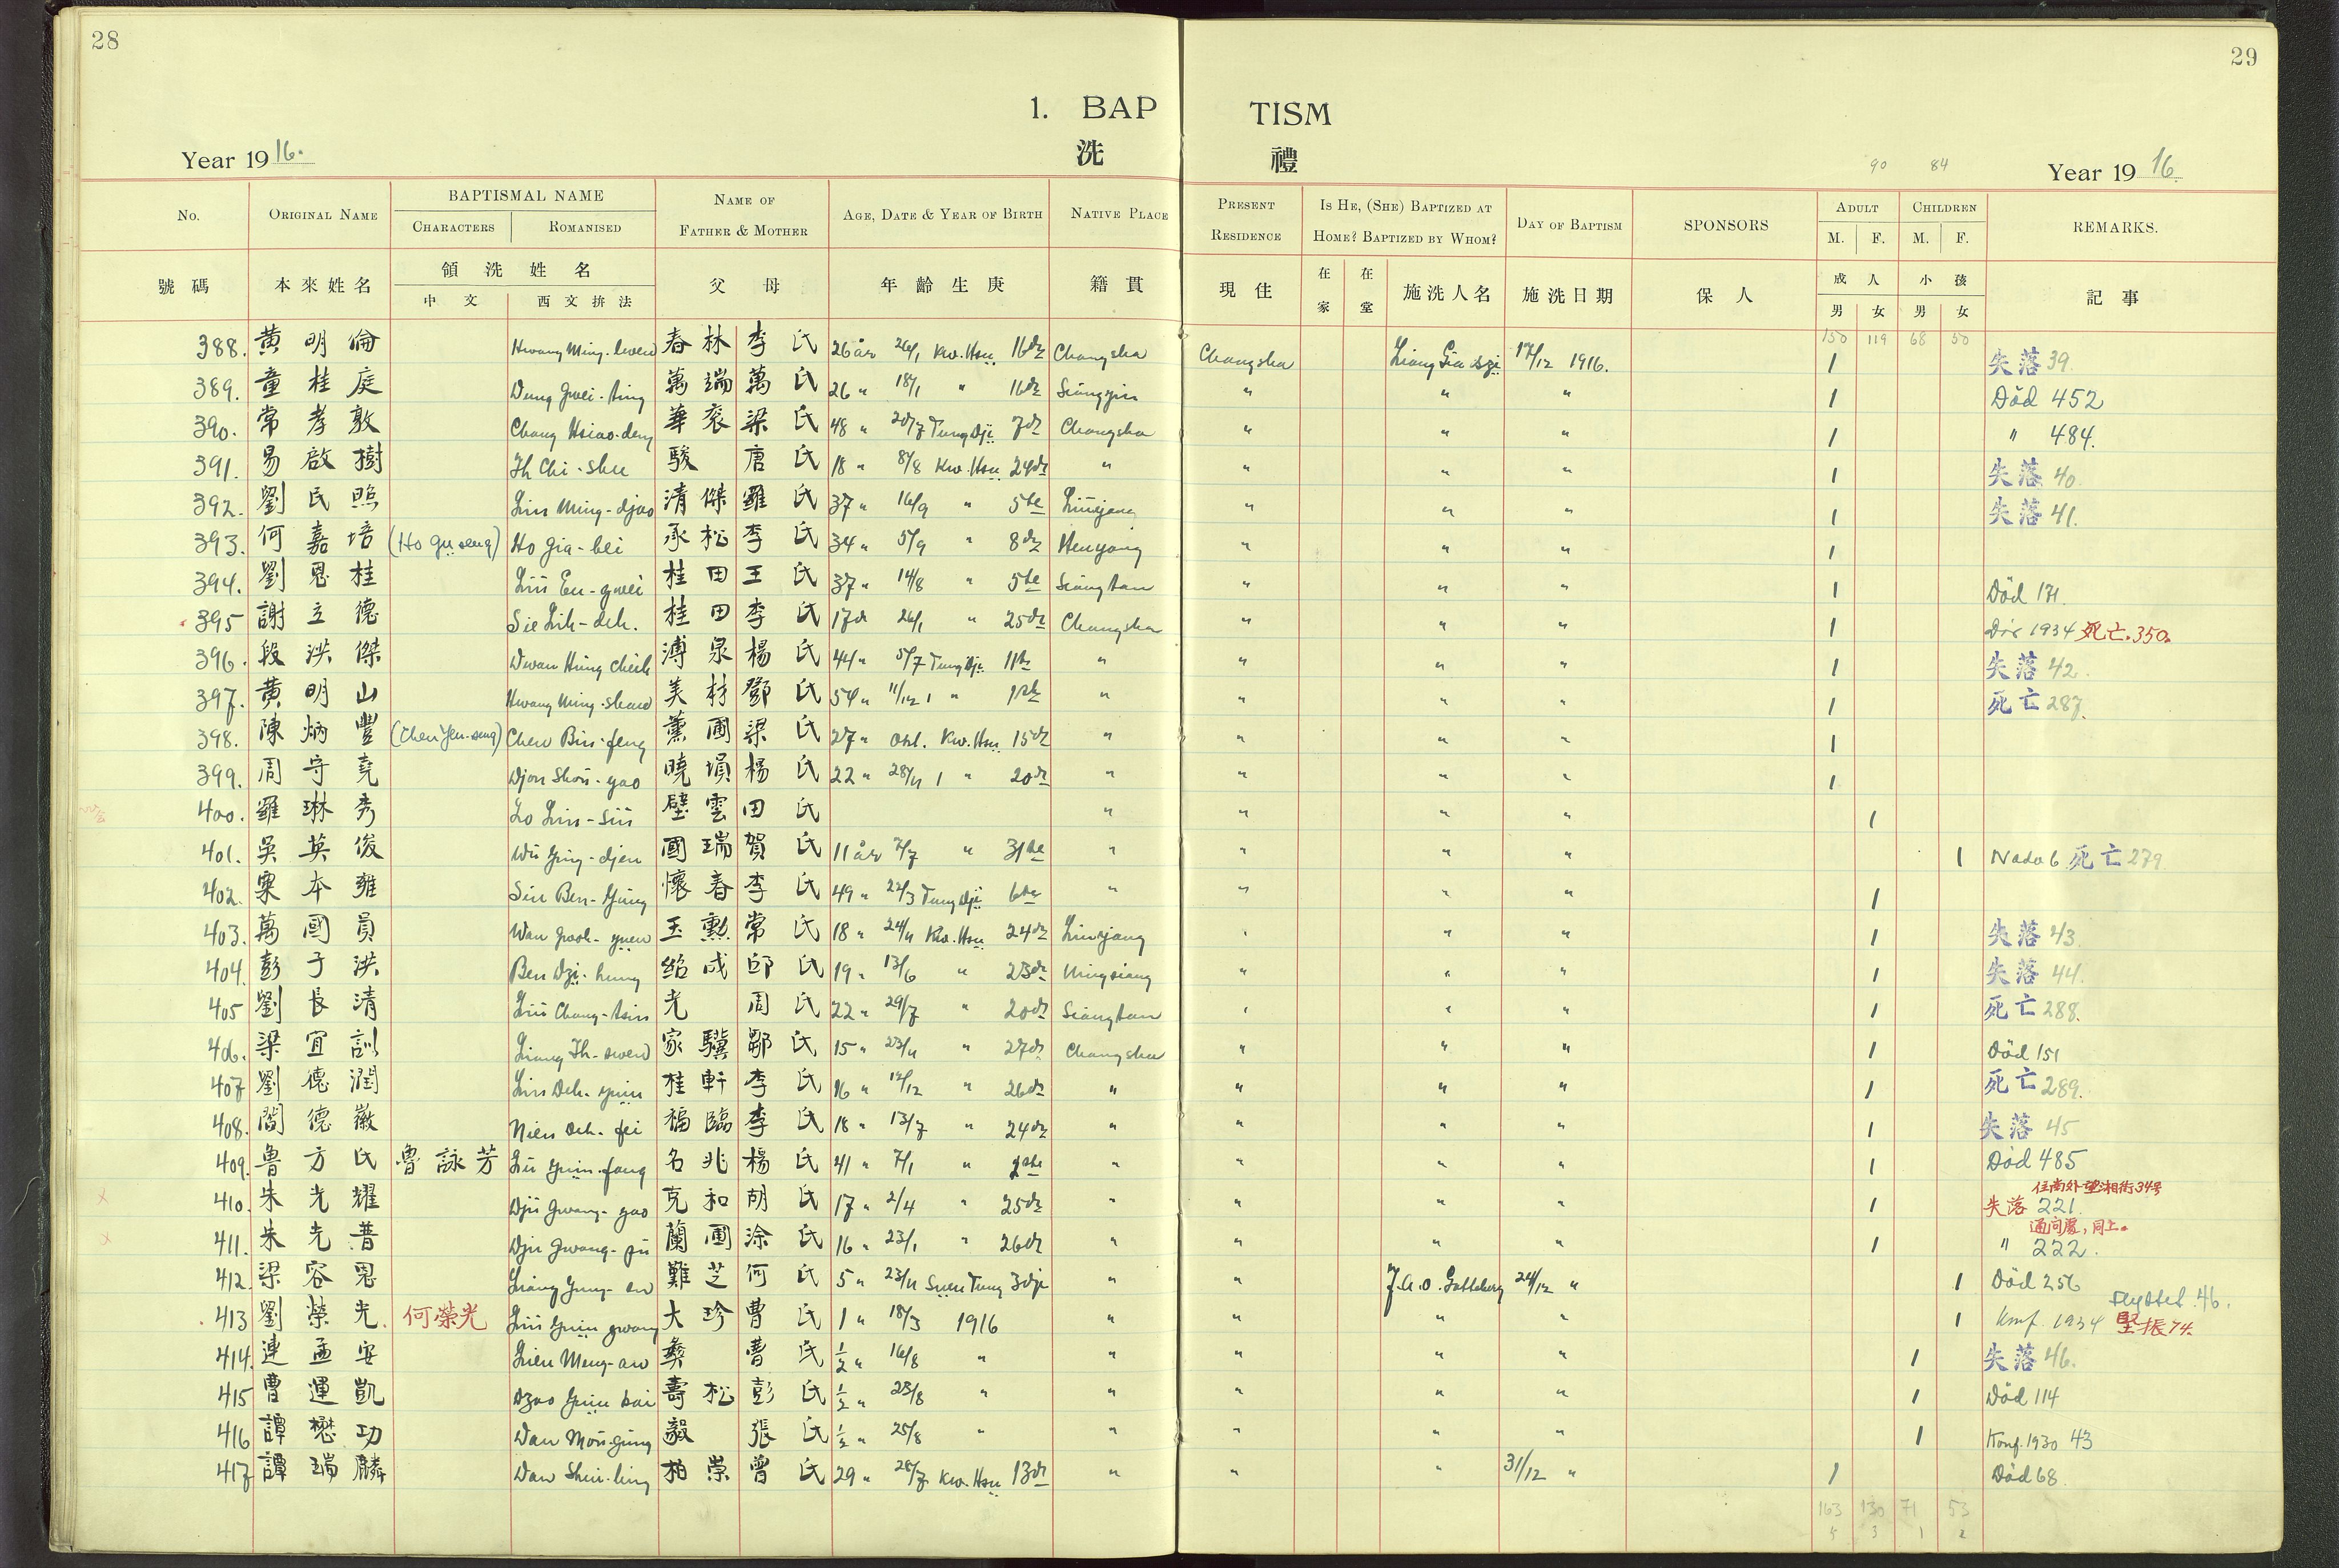 28
29
1. BAP TISM
洗 禮
Year 1916.
90 84
Year 1916.
No. ORIGINAL NAME BAPTISMAL NAME NAME OF FATHER & MOTHER AGE, DATE & YEAR OF BIRTH NATIVE PLACE PRESENT RESIDENCE IS HE, (SHE) BAPTIZED AT HOME? BAPTIZED BY WHOM? DAY OF BAPTISM SPONSORS ADULT CHILDREN REMARKS.
CHARACTERS ROMANISED M. F. M. F.
號碼 本來姓名 領洗姓名 父母 年齡生庚 籍貫 現住 在家 在堂 施洗人名 施洗日期 保人 成人 小孩 記事
中文 西文拚法 男 女 男 女
150 119 68 50
388. 黃明倫 Hwang Ming-lwen 春林 李氏 26 år 26/1 Kw. Hsu 16de Changsha Changsha 17/12 1916. 1 失落 39.
389. 童桂庭 Dung Gwei-ting 萬端 萬氏 26 " 18/1 " 16de Siangyin " " " 1 Död 452
390. 常孝敦 Chang Hsiao-den 華袞 梁氏 48 " 20/7 Tung Dji 7de Changsha " " " 1 " 484.
391. 易啟樹 Ih Chi-shu 駿 唐氏 18 " 8/8 Kw. Hsu 24de " " " " 1 失落 40.
392. 劉民照 Liu Ming-djao 清傑 羅氏 37 " 16/9 " 5te " " " 1 失落 41.
393. 何嘉培 (Ho Gu seng) Ho Gia-bei 承松 李氏 34 " 5/9 " 8de Henyang " " " 1
394. 劉恩桂 Liu En-gwei 桂田 王氏 37 " 14/8 " 5te Siangtan " " " 1 Död 171.
395 謝立德 Sie Lih-deh. 桂田 李氏 17de 26/1 " 25de Changsha " " " 1 1934 死亡.350.
396. 段洪傑 Dwan Hung Chieh 溥泉 楊氏 44 " 5/7 Tung Dji 11te " " " " 1 失落 42.
397. 黃明山 Hwang Ming-shan 美材 鄧氏 54 " 11/12 " " " " " 1 死亡 287.
398. 陳炳豐 (Chen Yen-seng) Chen Bin-feng 薰圃 梁氏 27 " Kw. Hsu 15de " " " " 1
399. 周守堯 Djou Shou-yao 曉塤 楊氏 22 " 28/11 " 20de " " " " 1
400. 羅琳秀 Lo Lin-siu 壁雲 田氏 " " " " 1
401. 吳英俊 Wu Ying-djen 國瑞 賀氏 11 år 7/7 " 31te " " " " 1 死亡 279.
402. 本雍 Ben-Yung 懷春 李氏 49 " 22/3 Tung Dji 6te " " " " 1
403. 萬國員 Wan Gwoh-yuen 玉勳 常氏 18 " 24/11 Kw. Hsu 24de " " " 1 失落 43.
404. 彭子洪 Ben Dzi-hung 紹成 邱氏 19 " 13/6 " 23de Ningsiang " " " 1 失落 44.
405 劉長清 Liu Chang-tsin 光 周氏 22 " 29/7 " 20de Siangtan " " " 1 死亡 288.
406. 梁宜訓 Liang Ih-swen 家驥 鄒氏 15 " 23/11 " 27de Changsha " " " 1 Död 151
407 劉德潤 Liu Deh-yuin 桂軒 李氏 16 " 12/12 " 26de " " " " 1 死亡 289.
408. 閻德徽 Nien Deh-fei 福臨 李氏 18 " 13/7 " 24de " " " " 1 失落 45
409. 魯方氏 魯詠芳 Lu Yuin-fang 名兆 楊氏 41 " 7/1 " " " " " 1 Död 485
410. 朱光耀 Dju Gwang-yao 克和 胡氏 17 " 2/4 " 25de " " " " 1 失落 221.
住南外望湘街34号
411. 朱光普 Dju Gwang-pu 蘭圃 涂氏 16 " 23/1 " 26de " " " " 1 " 222.
通向處,同上.
412. 梁容恩 Liang Yung-en 難芝 何氏 5 " 23/11 Suen Tung 3dje " " 24/12 " 1 Död 256
413 劉榮光. 何榮光 Liu Yuin gwang 大珍 曹氏 1 " 18/3 1916 " " " " 1 Konf. 1934 Flyttet. 46. 堅振74.
414. 連孟安 Lien Meng-an 彝 曹氏 1/2 " 16/8 " " " " " 1 失落 46.
415 曹運凱 Dzao Yuin kai 壽松 彭氏 1/2 " 23/8 " " " " " 1 Död 114
416 譚懋功 Dan Mou-gung 毅 張氏 1/2 " 25/8 " " " " " 1 Konf. 1930 43
417 譚瑞麟 Dan Shui-ling 柏崇 曾氏 29 " 28/7 Kw. Hsu 13de " " " 31/12 " 1 Död 68.
163 130 71 53
5 3 1 2